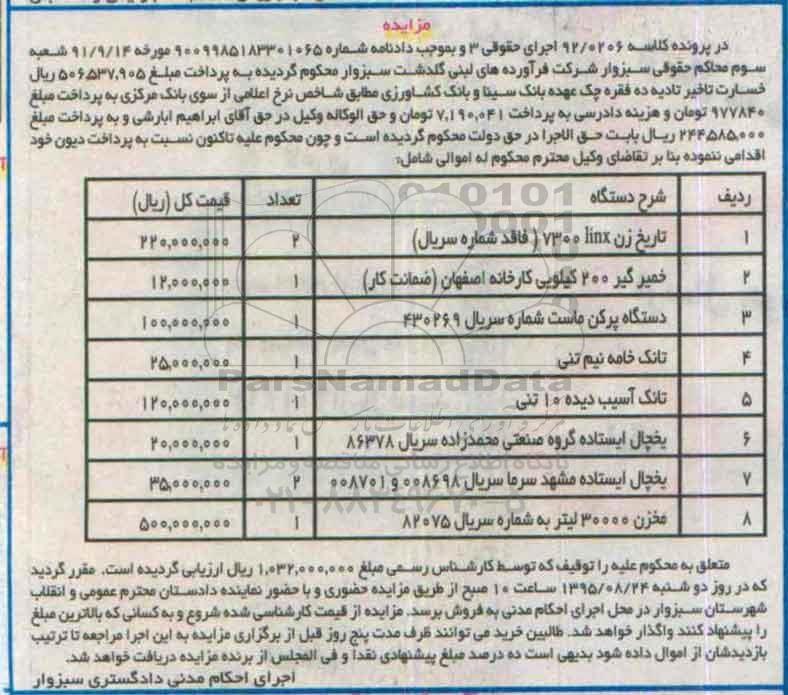 مزایده
در پرونده کلاسه ۹۲/۰۲۰۶ اجرای حقوقی ۳ و بموجب دادنامه شماره ۹۰۰۹۹۸۵۱۸۳۳۰۱۰۶۵ مورخه ۹۱/۹/۱۴ شعبه
سوم محاکم حقوقی سبزوار شرکت فرآورده های لبنی گلدشت سبزوار محکوم گردیده به پرداخت مبلغ ۵۰۶،۵۳۷،۹۰۵ ریال
خسارت تاخیر تادیه ده فقره چک عهده بانک سینا و بانک کشاورزی مطابق شاخص نرخ اعلامی از سوی بانک مرکزی به پرداخت مبلغ
۹۷۷۸۴۰ تومان و هزینه دادرسی به پرداخت ۷,۱۹۰,۰۴۱ تومان و حق الوکاله وکیل در حق آقای ابراهیم ابارشی و به پرداخت مبلغ
۲۴۴,۵۸۵,۰۰۰ ریال بابت حق الاجرا در حق دولت محکوم گردیده است و چون محکوم علیه تاکنون نسبت به پرداخت دیون خود
اقدامی ننموده بنا بر تقاضای وکیل محترم محکوم له اموالی شامل:
ردیف شرح دستگاه تعداد قیمت کل (ریال)
۱ تاریخ زن linx ۷۳۰۰ ( فاقد شماره سریال) ۲ ۲۲۰,۰۰۰,۰۰۰
۲ خمیر گیر ۲۰۰ کیلویی کارخانه اصفهان (ضمانت کار) ۱ ۱۲,۰۰۰,۰۰۰
۳ دستگاه پرکن ماست شماره سریال ۴۳۰۲۶۹ ۱ ۱۰۰,۰۰۰,۰۰۰
۴ تانک خامه نیم تنی ۱ ۲۵,۰۰۰,۰۰۰
۵ تانک آسیب دیده ۱۰ تنی ۱ ۱۲۰,۰۰۰,۰۰۰
۶ یخچال ایستاده گروه صنعتی محمدزاده سریال ۸۶۳۷۸ ۱ ۲۰,۰۰۰,۰۰۰
۷ یخچال ایستاده مشهد سرما سریال ۰۰۸۶۹۸ و ۰۰۸۷۰۱ ۲ ۳۵,۰۰۰,۰۰۰
۸ مخزن ۳۰۰۰۰ لیتر به شماره سریال ۸۲۰۷۵ ۱ ۵۰۰,۰۰۰,۰۰۰
ParsNamadData
پایگاه اطلاع رسانی مناقصه و مزایده
۰۲۱-۸۸۳۴۹۶۷۰-۵
متعلق به محکوم علیه را توقیف که توسط کارشناس رسمی مبلغ ۱,۰۳۲,۰۰۰,۰۰۰ ریال ارزیابی گردیده است. مقرر گردید
که در روز دو شنبه ۱۳۹۵/۰۸/۲۴ ساعت ۱۰ صبح از طریق مزایده حضوری و با حضور نماینده دادستان محترم عمومی و انقلاب
شهرستان سبزوار در محل اجرای احکام مدنی به فروش برسد. مزایده از قیمت کارشناسی شده شروع و به کسانی که بالاترین مبلغ
را پیشنهاد کنند واگذار خواهد شد. طالبین خرید می توانند ظرف مدت پنج روز قبل از برگزاری مزایده به این اجرا مراجعه تا ترتیب
بازدیدشان از اموال داده شود بدیهی است ده درصد مبلغ پیشنهادی نقدا و فی المجلس از برنده مزایده دریافت خواهد شد.
اجرای احکام مدنی دادگستری سبزوار